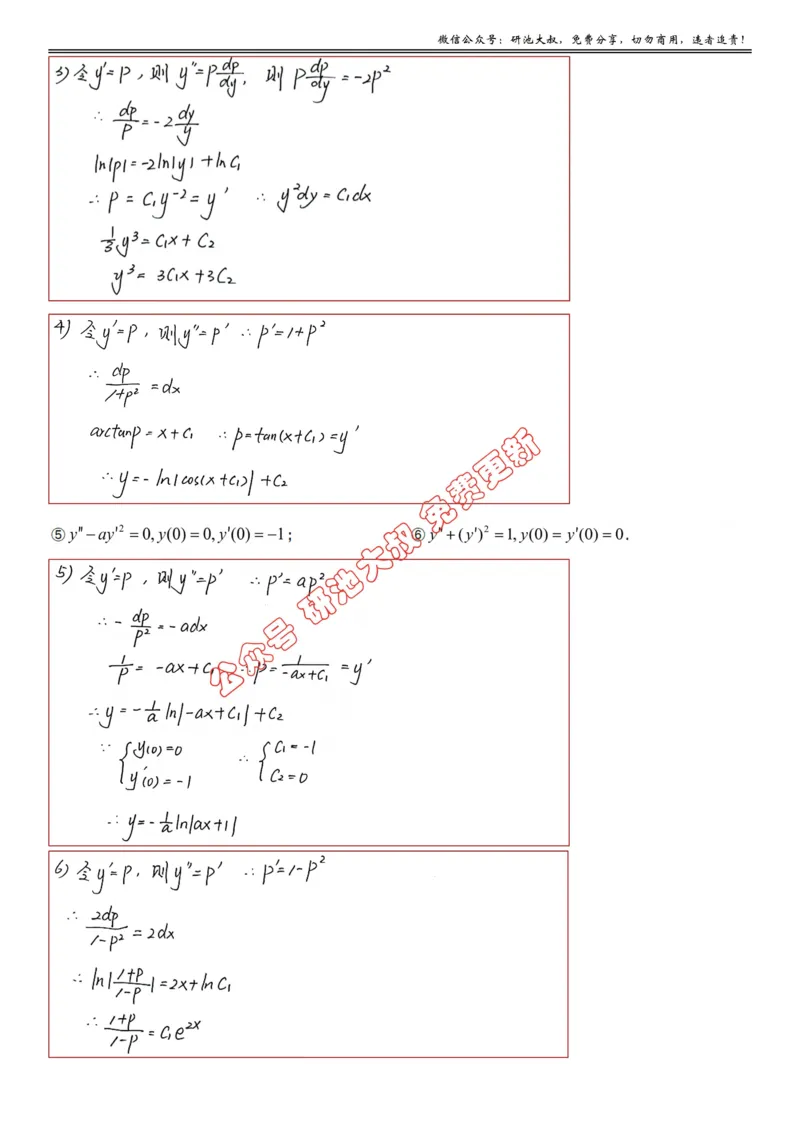 微信公众号：研池大叔，免费分享，切勿商用，违者追责！
3) 令y'=p，则 y''=p dp/dy， 则 p dp/dy = -2p²
∴ dp/p = -2 dy/y
ln|p| = -2ln|y| + lnC₁
∴ p = C₁y⁻² = y' ∴ y²dy = C₁dx
1/3 y³ = C₁x + C₂
y³ = 3C₁x + 3C₂
4) 令y'=p，则y''=p' ∴ p'=1+p²
∴ dp/(1+p²) = dx
arctanp = x+C₁ ∴ p=tan(x+C₁)=y'
∴ y = -ln|cos(x+C₁)| + C₂
⑤ y''−ay'² = 0, y(0) = 0, y'(0) = −1； ⑥ y''+(y')² = 1, y(0) = y'(0) = 0.
5) 令y'=p，则y''=p' ∴ p'=ap²
∴ -dp/p² = -adx
1/p = -ax+C₁ ∴ p = 1/(-ax+C₁) = y'
∴ y = -1/a ln|-ax+C₁| + C₂
∵ { y(0)=0 ∴ { C₁=-1
y'(0)=-1 C₂=0
∴ y = -1/a ln|ax+1|
6) 令y'=p，则y''=p' ∴ p'=1-p²
∴ 2dp/(1-p²) = 2dx
∴ ln|(1+p)/(1-p)| = 2x+lnC₁
∴ (1+p)/(1-p) = C₁e²ˣ
公众号 研池大叔 免费更新